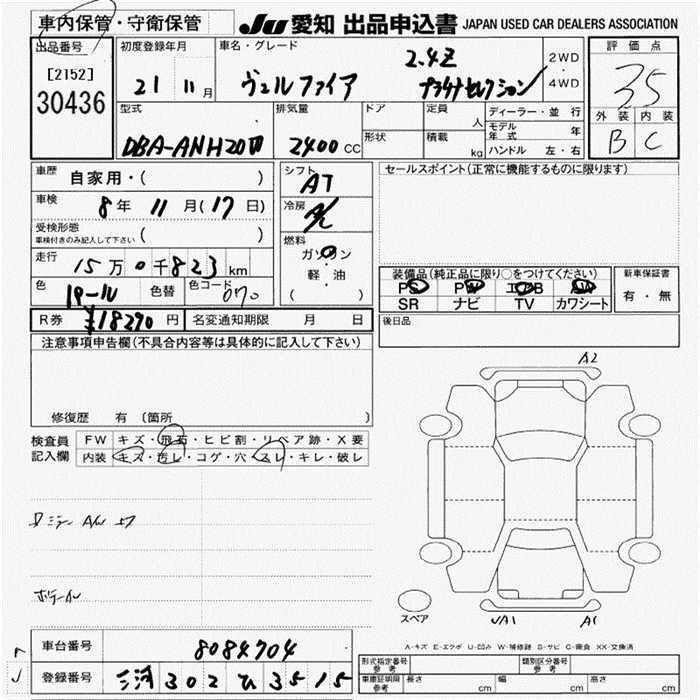 車内保管・守衛保管
JU 愛知 出品申込書 JAPAN USED CAR DEALERS ASSOCIATION
出品番号
[2152]
30436
初度登録年月
21 11月
車名・グレード
2.4Z
ヴェルファイア プラチナセレクション
2WD
・
4WD
評価点
35
外装 内装
B C
型式
DBA-ANH20W
排気量
2400 CC
ドア
形状
定員
人
積載
kg
ディーラー・並行
モデル年式 年
ハンドル 左・右
車歴
自家用・( )
車検
8年 11月(17日)
受検形態
車検付きのみ記入して下さい ( )
走行
15万0千823km
色
パール
色替
色コード
070
シフト
AT
冷房
A/C
燃料
ガソリン
・
軽・油
( )
セールスポイント(正常に機能するものに限ります)
装備品(純正品に限り○をつけてください)
PS PW エアB AW
SR ナビ TV カワシート
新車保証書
有・無
R券 ¥18290円 名変通知期限 月 日
後日品
注意事項申告欄(不具合内容等は具体的に記入して下さい)
修復歴 有 〔箇所 〕
検査員
記入欄
FW キズ・飛石・ヒビ割・リペア跡・X要
内装 キズ・汚レ・コゲ・穴・スレ・キレ・破レ
A2
スペア
A1
A-キズ E-エクボ U-凹み W-補修跡 S-サビ C-腐食 XX-交換済
車台番号
8084704
登録番号
三河 302 ひ 3515
形式指定番号
参考
類別区分番号
参考
車庫証明用
参考
長さ cm
幅 cm
高さ cm